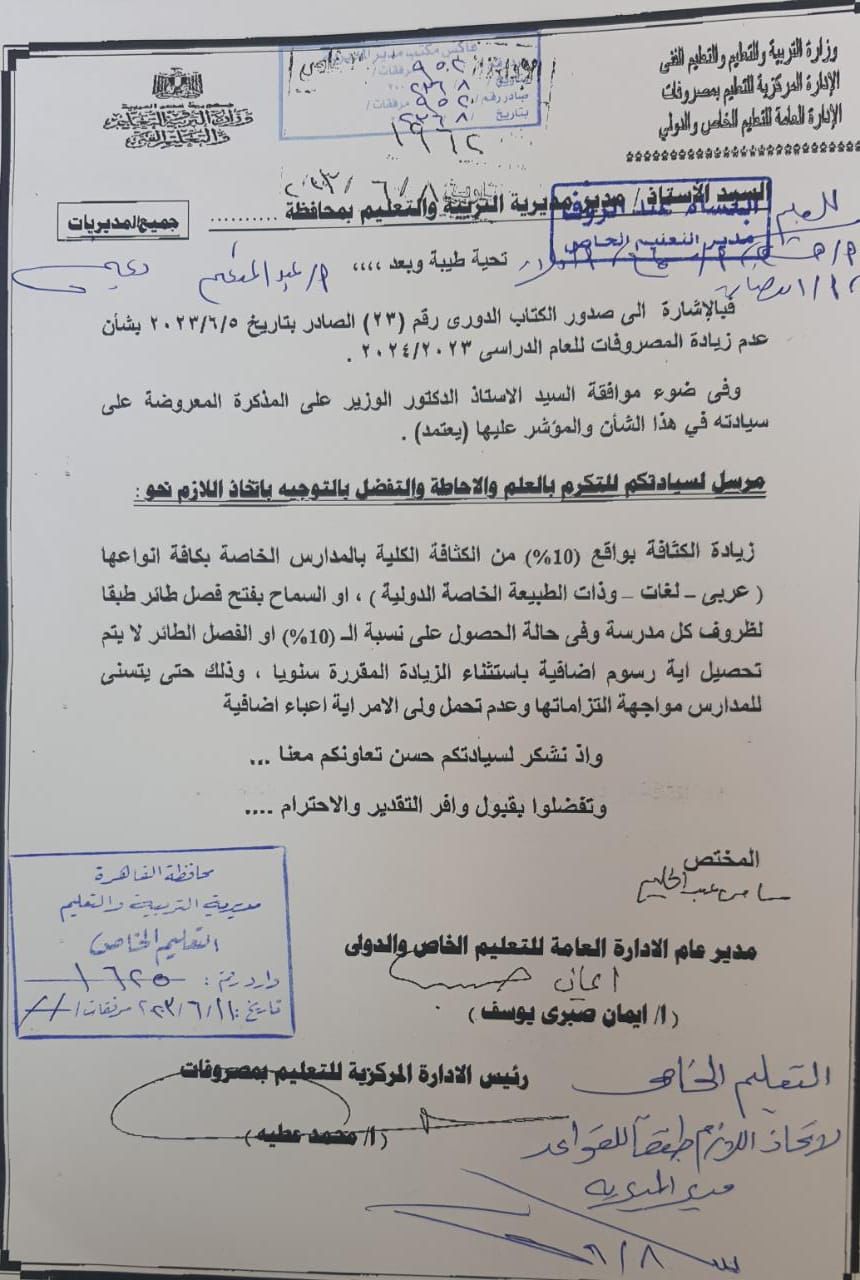 وزارة التربية والتعليم والتعليم الفنى
الإدارة المركزية للتعليم بمصروفات
الإدارة العامة للتعليم الخاص والدولي
جمهورية مصر العربية
وزارة التربية والتعليم
والتعليم الفني
فاكس مكتب مدير
مرفقات /
صادر رقم / ٩٥٢ مرفقات /
بتاريخ
١٩٦٢
السيد الأستاذ / مدير مديرية التربية والتعليم بمحافظة .........
جميع المديريات
مدير التعليم الخاص
تحية طيبة وبعد ،،،،
فبالإشارة الى صدور الكتاب الدورى رقم (٢٣) الصادر بتاريخ ٢٠٢٣/٦/٥ بشأن
عدم زيادة المصروفات للعام الدراسى ٢٠٢٤/٢٠٢٣ .
وفى ضوء موافقة السيد الاستاذ الدكتور الوزير على المذكرة المعروضة على
سيادته في هذا الشأن والمؤشر عليها (يعتمد) .
مرسل لسيادتكم للتكرم بالعلم والاحاطة والتفضل بالتوجيه باتخاذ اللازم نحو :
زيادة الكثافة بواقع (10%) من الكثافة الكلية بالمدارس الخاصة بكافة انواعها
( عربى – لغات – وذات الطبيعة الخاصة الدولية ) ، او السماح بفتح فصل طائر طبقا
لظروف كل مدرسة وفى حالة الحصول على نسبة الـ (10%) او الفصل الطائر لا يتم
تحصيل اية رسوم اضافية باستثناء الزيادة المقررة سنويا ، وذلك حتى يتسنى
للمدارس مواجهة التزاماتها وعدم تحمل ولى الامر اية اعباء اضافية
واذ نشكر لسيادتكم حسن تعاونكم معنا ...
وتفضلوا بقبول وافر التقدير والاحترام ....
المختص
سامى عبد الحليم
مدير عام الادارة العامة للتعليم الخاص والدولى
( ا/ ايمان صبرى يوسف )
محافظة القاهرة
مديرية التربية والتعليم
التعليم الخاص
وارد رقم : ١٦٢٥
تاريخ : ٢٠٢٣/٦/١١ مرفقات /
رئيس الادارة المركزية للتعليم بمصروفات
( ا/ محمد عطيه )
التعليم الخاص
لاتخاذ اللازم طبقاً للقواعد
مدير المديرية
٦/٨